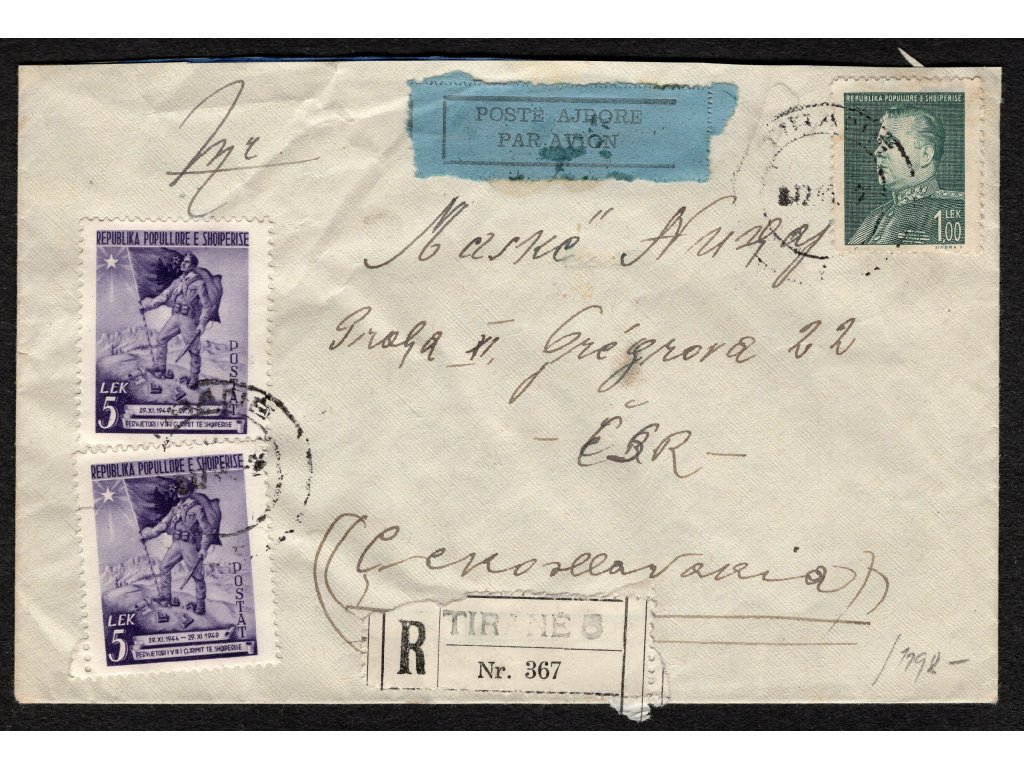 POSTË AJRORE
PAR AVION
REPUBLIKA POPULLORE E SHQIPERISE
1.00 LEK
REPUBLIKA POPULLORE E SHQIPERISE
POSTAT
LEK
5
29. XI. 1944 – 29. XI 1949
PERVJETORI V I ÇLIRIMIT TE SHQIPERISE
REPUBLIKA POPULLORE E SHQIPERISE
POSTAT
LEK
5
29. XI. 1944 – 29. XI 1949
PERVJETORI V I ÇLIRIMIT TE SHQIPERISE
Praha XI. Grégrova 22
– ČSR –
(Cekosllavakia)
R
TIRANË 5
Nr. 367